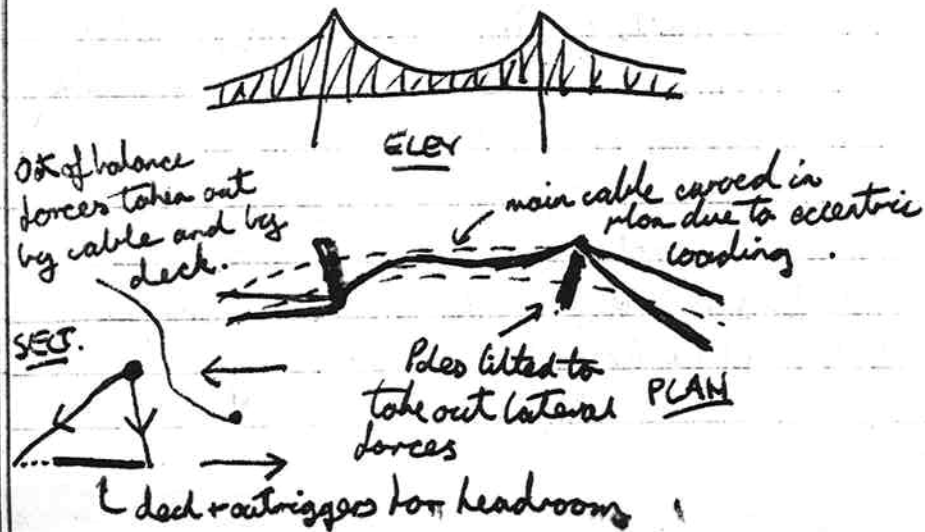 ELEV
Out of balance
forces taken out
by cable and by
deck.
main cable curved in
plan due to eccentric
loading.
SECT.
Poles tilted to
take out lateral
forces
PLAN
deck + outriggers for headroom